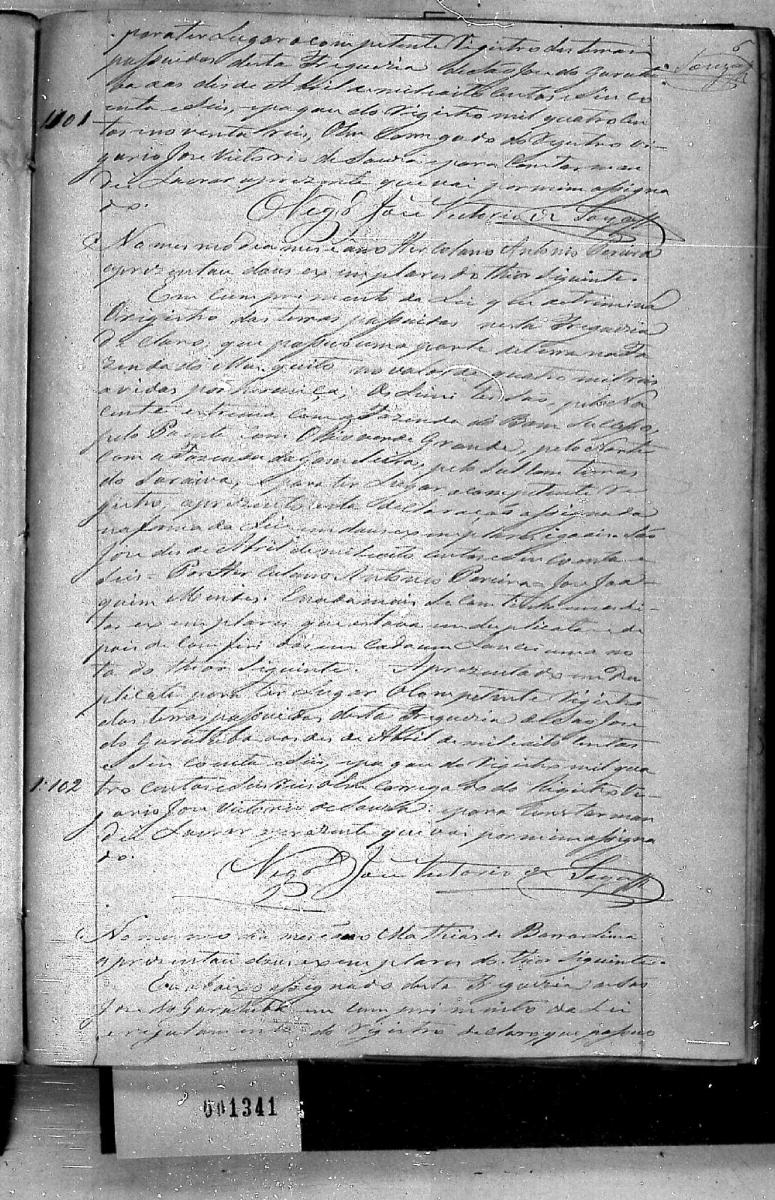 6
Souza
para ter Lugar o competente Registro das terras
possuidas desta Freguezia de São José do Garatu
ba aos des de Abril de mil oito centos e sin co
1101
enta e Seis, e pagou do Registro mil quatro cen
tos e noventa reis, O En Carregado do Registro Vi
gario José Victorio de Souza e para Constar man
dei Lavrar a prezente que vai por mim assigna
do.
O Vigº José Victorio de Souza
No mesmo dia mes e anno Her culano Antonio Pereira
aprezentou dous ex emplares do thior Siguinte.
Em Cum pri mento da Lei que detrimina
O registro das terras possuidas nesta Freguezia
De Claro, que possuo uma parte de terra na Fa
zenda do Mosquito no valor de quatro mil reis
a vidas por herança, Os Limi tes são, pelo Na
cente extrema com a Fazenda do Bom Sucesso,
pelo Poente Com O Rio Grande, pelo Norte
com a Fazenda da Gamileira, pelo Sul Com terras
do Saraiva, e para ter Lugar o competente Re
gistro, aprezento esta declaração assignada
na forma da Lei em dous ex emplares iguais São
José des de Abril de mil oito centos e sin coenta e
Seis = Por Her Culano Antonio Pereira = José Joa-
quim Mendes. E nada mais se Con tinha nos di-
tos ex em plares que estava em duplicata e de
pois de Con feri dos em Cada um Lancei uma no
ta do thior Siguinte. Aprezentado em Du
plicata para ter Lugar O Competente Registro
das terras possuidas desta Freguezia de São José
do Garatuba aos des de Abril de mil oito centos
e Sin coenta e Seis, e pagou do Registro mil qua
1:102
tro centos e Seis reis O En carregado do Registro Vi
gario José Victorio de Souza: e para Constar man
dei Lavrar a prezente que vai por mim assigna
do.
O Vigº José Victorio de Souza
No mesmo dia mes e anno Mathias de Barros Lima
aprezentou dous ex em plares do thior Siguinte.
Eu abaixo assignado desta Freguezia de São
José do Garatuba em cum pri mento da Lei
e regulamento do Registro declaro que possuo
001341